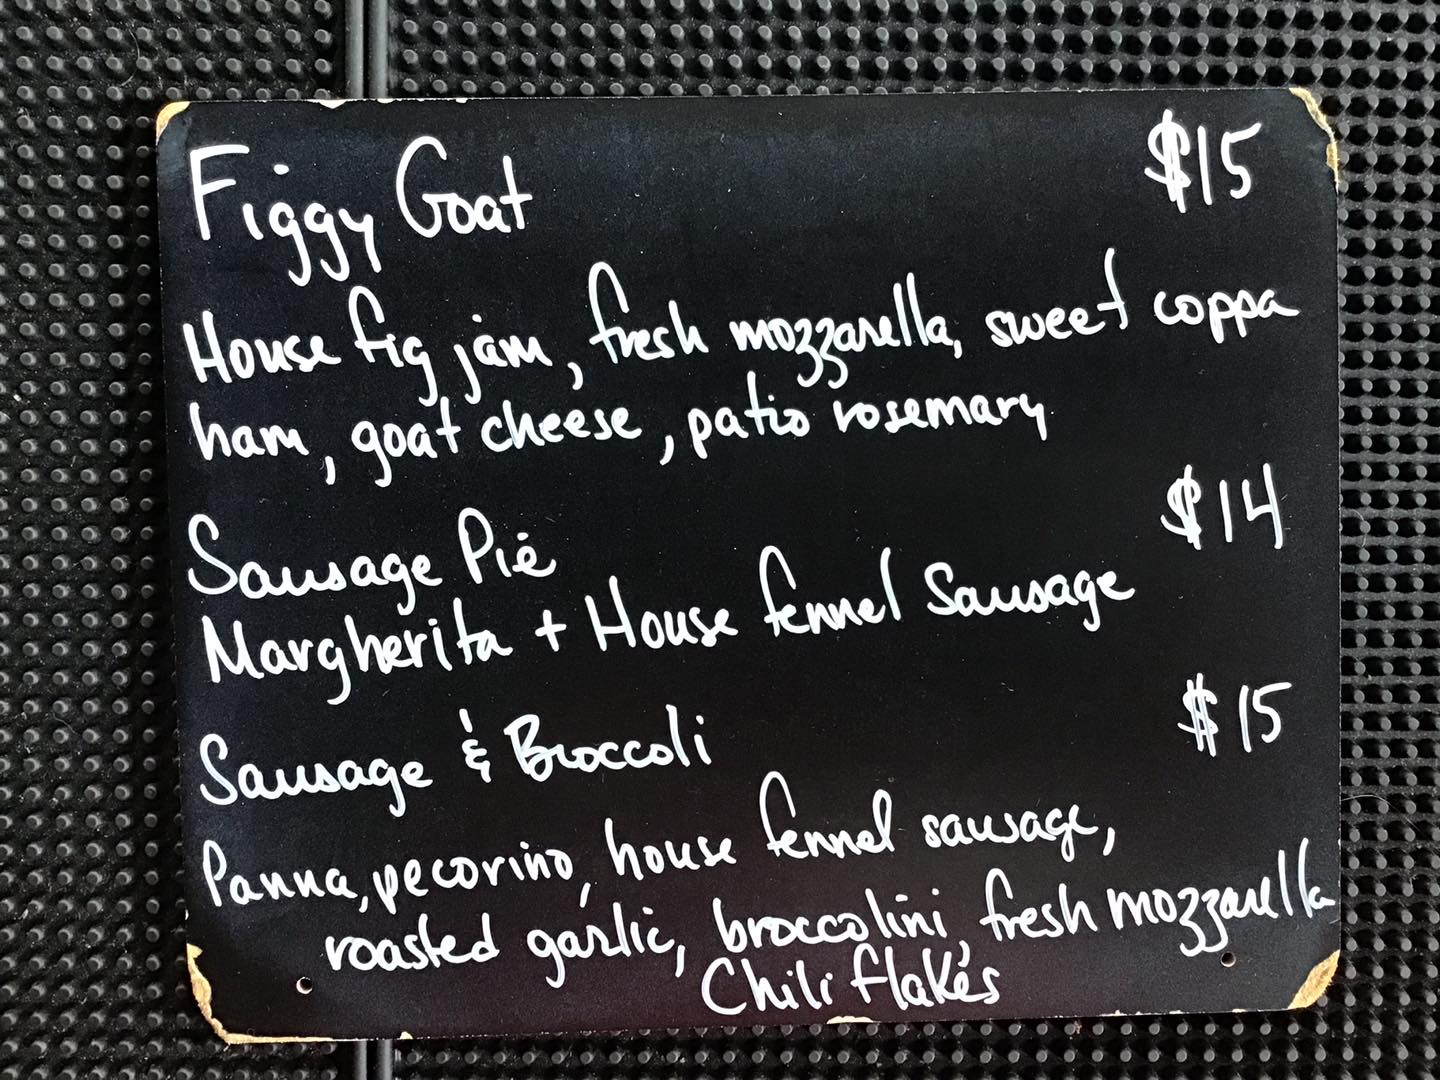 Figgy Goat $15
House fig jam, fresh mozzarella, sweet coppa
ham, goat cheese, patio rosemary
Sausage Pie $14
Margherita + House fennel Sausage
Sausage & Broccoli $15
Panna, pecorino, house fennel sausage,
roasted garlic, broccolini, fresh mozzarella
Chili flakes